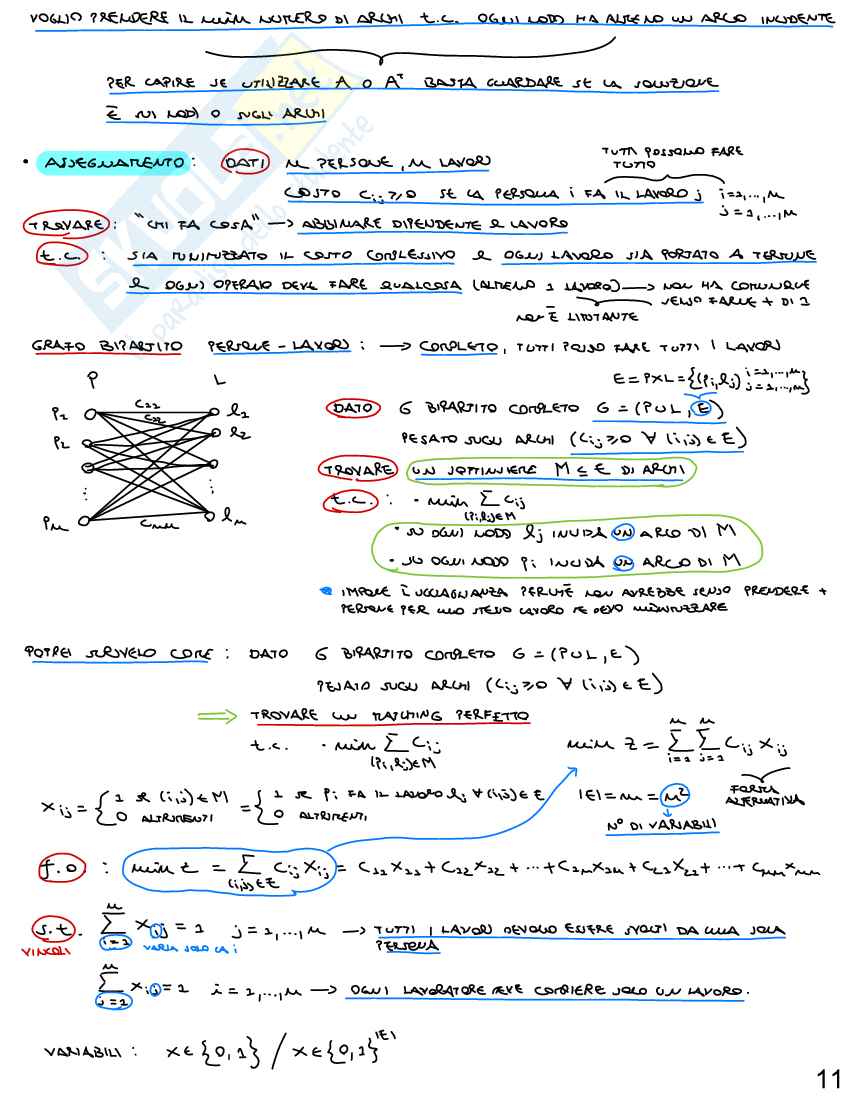 VOGLIO PRENDERE IL min NUMERO DI ARCHI t.c. OGNI NODO HA ALMENO UN ARCO INCIDENTE
PER CAPIRE SE UTILIZZARE A O Aᵀ BASTA GUARDARE SE LA SOLUZIONE
È SUI NODI O SUGLI ARCHI
• ASSEGNAMENTO : DATI n PERSONE, n LAVORI
TUTTI POSSONO FARE TUTTO
COSTO Cij ≥ 0 SE LA PERSONA i FA IL LAVORO j i=1,...,n
j=1,...,n
TROVARE : "CHI FA COSA" → ABBINARE DIPENDENTE e LAVORO
t.c. : SIA MINIMIZZATO IL COSTO COMPLESSIVO e OGNI LAVORO SIA PORTATO A TERMINE
e OGNI OPERAIO DEVE FARE QUALCOSA (ALMENO 1 LAVORO) → NON HA COMUNQUE
SENSO FARNE + DI 1
NON È LIMITANTE
GRAFO BIPARTITO PERSONE - LAVORI : → COMPLETO, TUTTI POSSO FARE TUTTI I LAVORI
P L
E = P×L = {(Pi, lj) i=1,...,n j=1,...,n}
P1 C11 l1
C12
P2 l2
⋮ ⋮
Pn Cnn ln
DATO G BIPARTITO COMPLETO G = (P∪L, E)
PESATO SUGLI ARCHI (Cij ≥ 0 ∀ (i,j) ∈ E)
TROVARE UN SOTTINSIEME M ⊆ E DI ARCHI
t.c. : • min ∑ Cij
(Pi,lj)∈M
• SU OGNI NODO lj INCIDA UN ARCO DI M
• SU OGNI NODO Pi INCIDA UN ARCO DI M
* IMPONE L'UGUAGLIANZA PERCHÈ NON AVREBBE SENSO PRENDERE +
PERSONE PER UNO STESSO LAVORO SE DEVO MINIMIZZARE
POTREI SCRIVERLO COME : DATO G BIPARTITO COMPLETO G = (P∪L, E)
PESATO SUGLI ARCHI (Cij ≥ 0 ∀ (i,j) ∈ E)
⇒ TROVARE UN MATCHING PERFETTO
t.c. • min ∑ Cij
(Pi,lj)∈M
min Z = ∑ⁿi=1 ∑ⁿj=1 Cij xij
FORMA ALTERNATIVA
xij = { 1 se (i,j) ∈ M = { 1 se Pi FA IL LAVORO lj ∀ (i,j) ∈ E
0 ALTRIMENTI 0 ALTRIMENTI
|E| = m = n²
N° DI VARIABILI
f.o : min z = ∑(i,j)∈E Cij xij = C11 x11 + C12 x12 + ... + C1n x1n + C21 x21 + ... + Cnn xnn
s.t. ∑ⁿi=1 xij = 1 j = 1,...,n → TUTTI I LAVORI DEVONO ESSERE SVOLTI DA UNA SOLA
VINCOLI VARIA SOLO LA i PERSONA
∑ⁿj=1 xij = 1 i = 1,...,n → OGNI LAVORATORE DEVE COMPIERE SOLO UN LAVORO.
VARIABILI : x ∈ {0,1} / x ∈ {0,1}^|E|
11